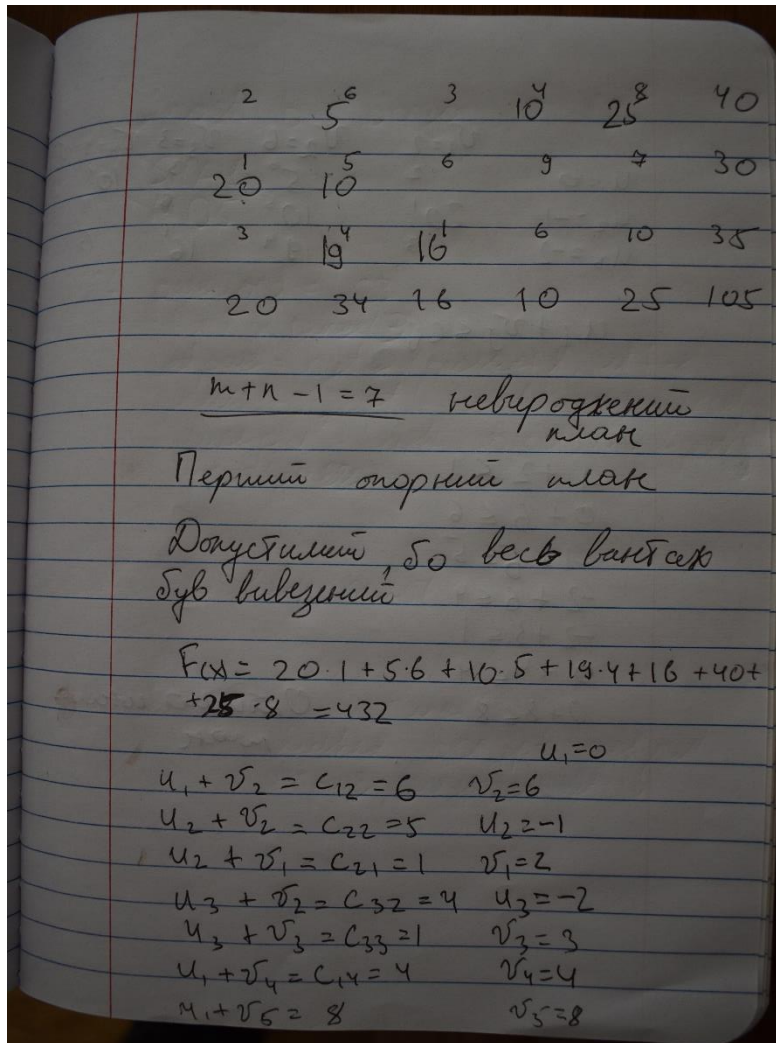 2 6 3 4 8 40
5 10 25
1 5 6 9 7 30
20 10
3 4 1 6 10 35
19 16
20 34 16 10 25 105
m+n-1=7 невироджений
план
Перший опорний план
Допустимий, бо весь вантаж
був вивезений
F(x)= 20·1+5·6+10·5+19·4+16+40+
+25·8 =432
u₁=0
u₁+v₂=c₁₂=6 v₂=6
u₂+v₂=c₂₂=5 u₂=-1
u₂+v₁=c₂₁=1 v₁=2
u₃+v₂=c₃₂=4 u₃=-2
u₃+v₃=c₃₃=1 v₃=3
u₁+v₄=c₁₄=4 v₄=4
u₁+v₅= 8 v₅=8